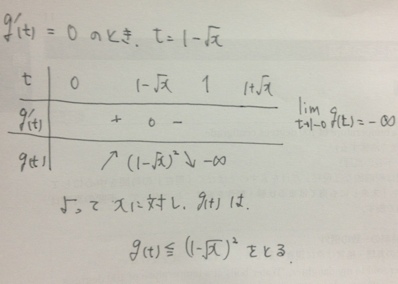 g'(t) = 0 のとき、t = 1-√x
t 0 1-√x 1 1+√x
g'(t) + 0 -
g(t) ↗ (1-√x)² ↘ -∞
lim t→1-0 g(t) = -∞
よって xに対し、g(t) は、
g(t) ≦ (1-√x)² をとる。